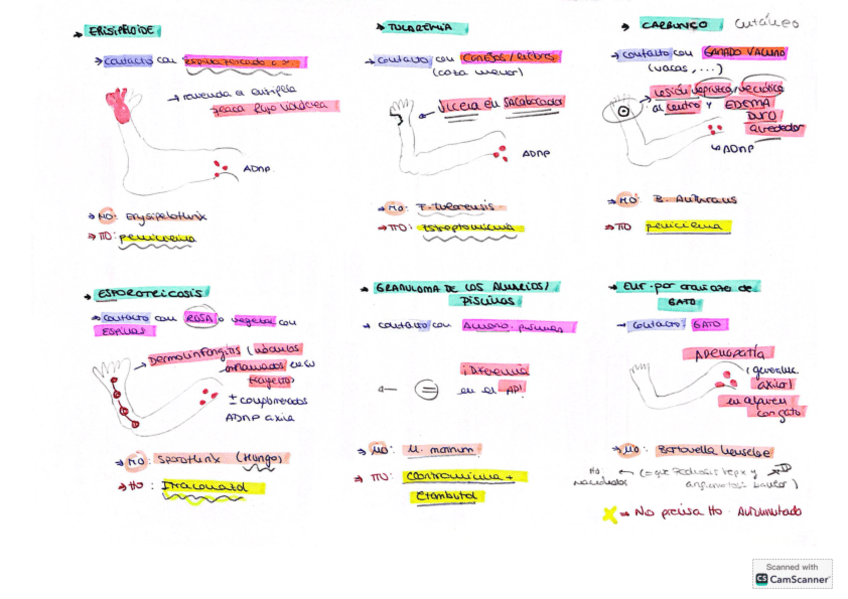 → ERISIPELOIDE
→ contacto con espina pescado o
→ recuerda a erisipela
placa rojo violácea
ADNP.
→ MO: Erysipelothrix
→ TTO: penicilina
→ TULAREMIA
→ contacto con CONEJOS/liebres
(caza menor)
← Úlcera en SACABOCADOS
ADNP
→ MO: F. Tularensis
→ TTO: Estreptomicina
→ CARBUNCO cutáneo
→ contacto con GANADO VACUNO
(vacas, ...)
Lesión necrótica
al centro y EDEMA
DURO
alrededor
↳ ADNP
→ MO: B. Anthracis
→ TTO penicilina
→ ESPOROTRICOSIS
→ contacto con ROSA o vegetal con
ESPINAS
→ Dermolinfangitis (nódulos
inflamados en su
trayecto)
± conglomerados
ADNP axila
→ MO: Sporothrix (Hongo)
→ tto: Itraconazol
→ GRANULOMA DE LOS ACUARIOS/
PISCINAS
→ contacto con Acuario, piscinas
← = ¡Diferencia
en el AP!
→ MO: M. marinum
→ TTO: Claritromicina +
Etambutol
→ Enf. por arañazo de
GATO
→ contacto: GATO
ADENOPATÍA
(generalmente
axilar)
en alguien
con gato
→ MO: Bartonella henselae
(= que Peliosis hepx y
angiomatosis bacilar)
→ No precisa tto. Autolimitado
Scanned with
CS CamScanner